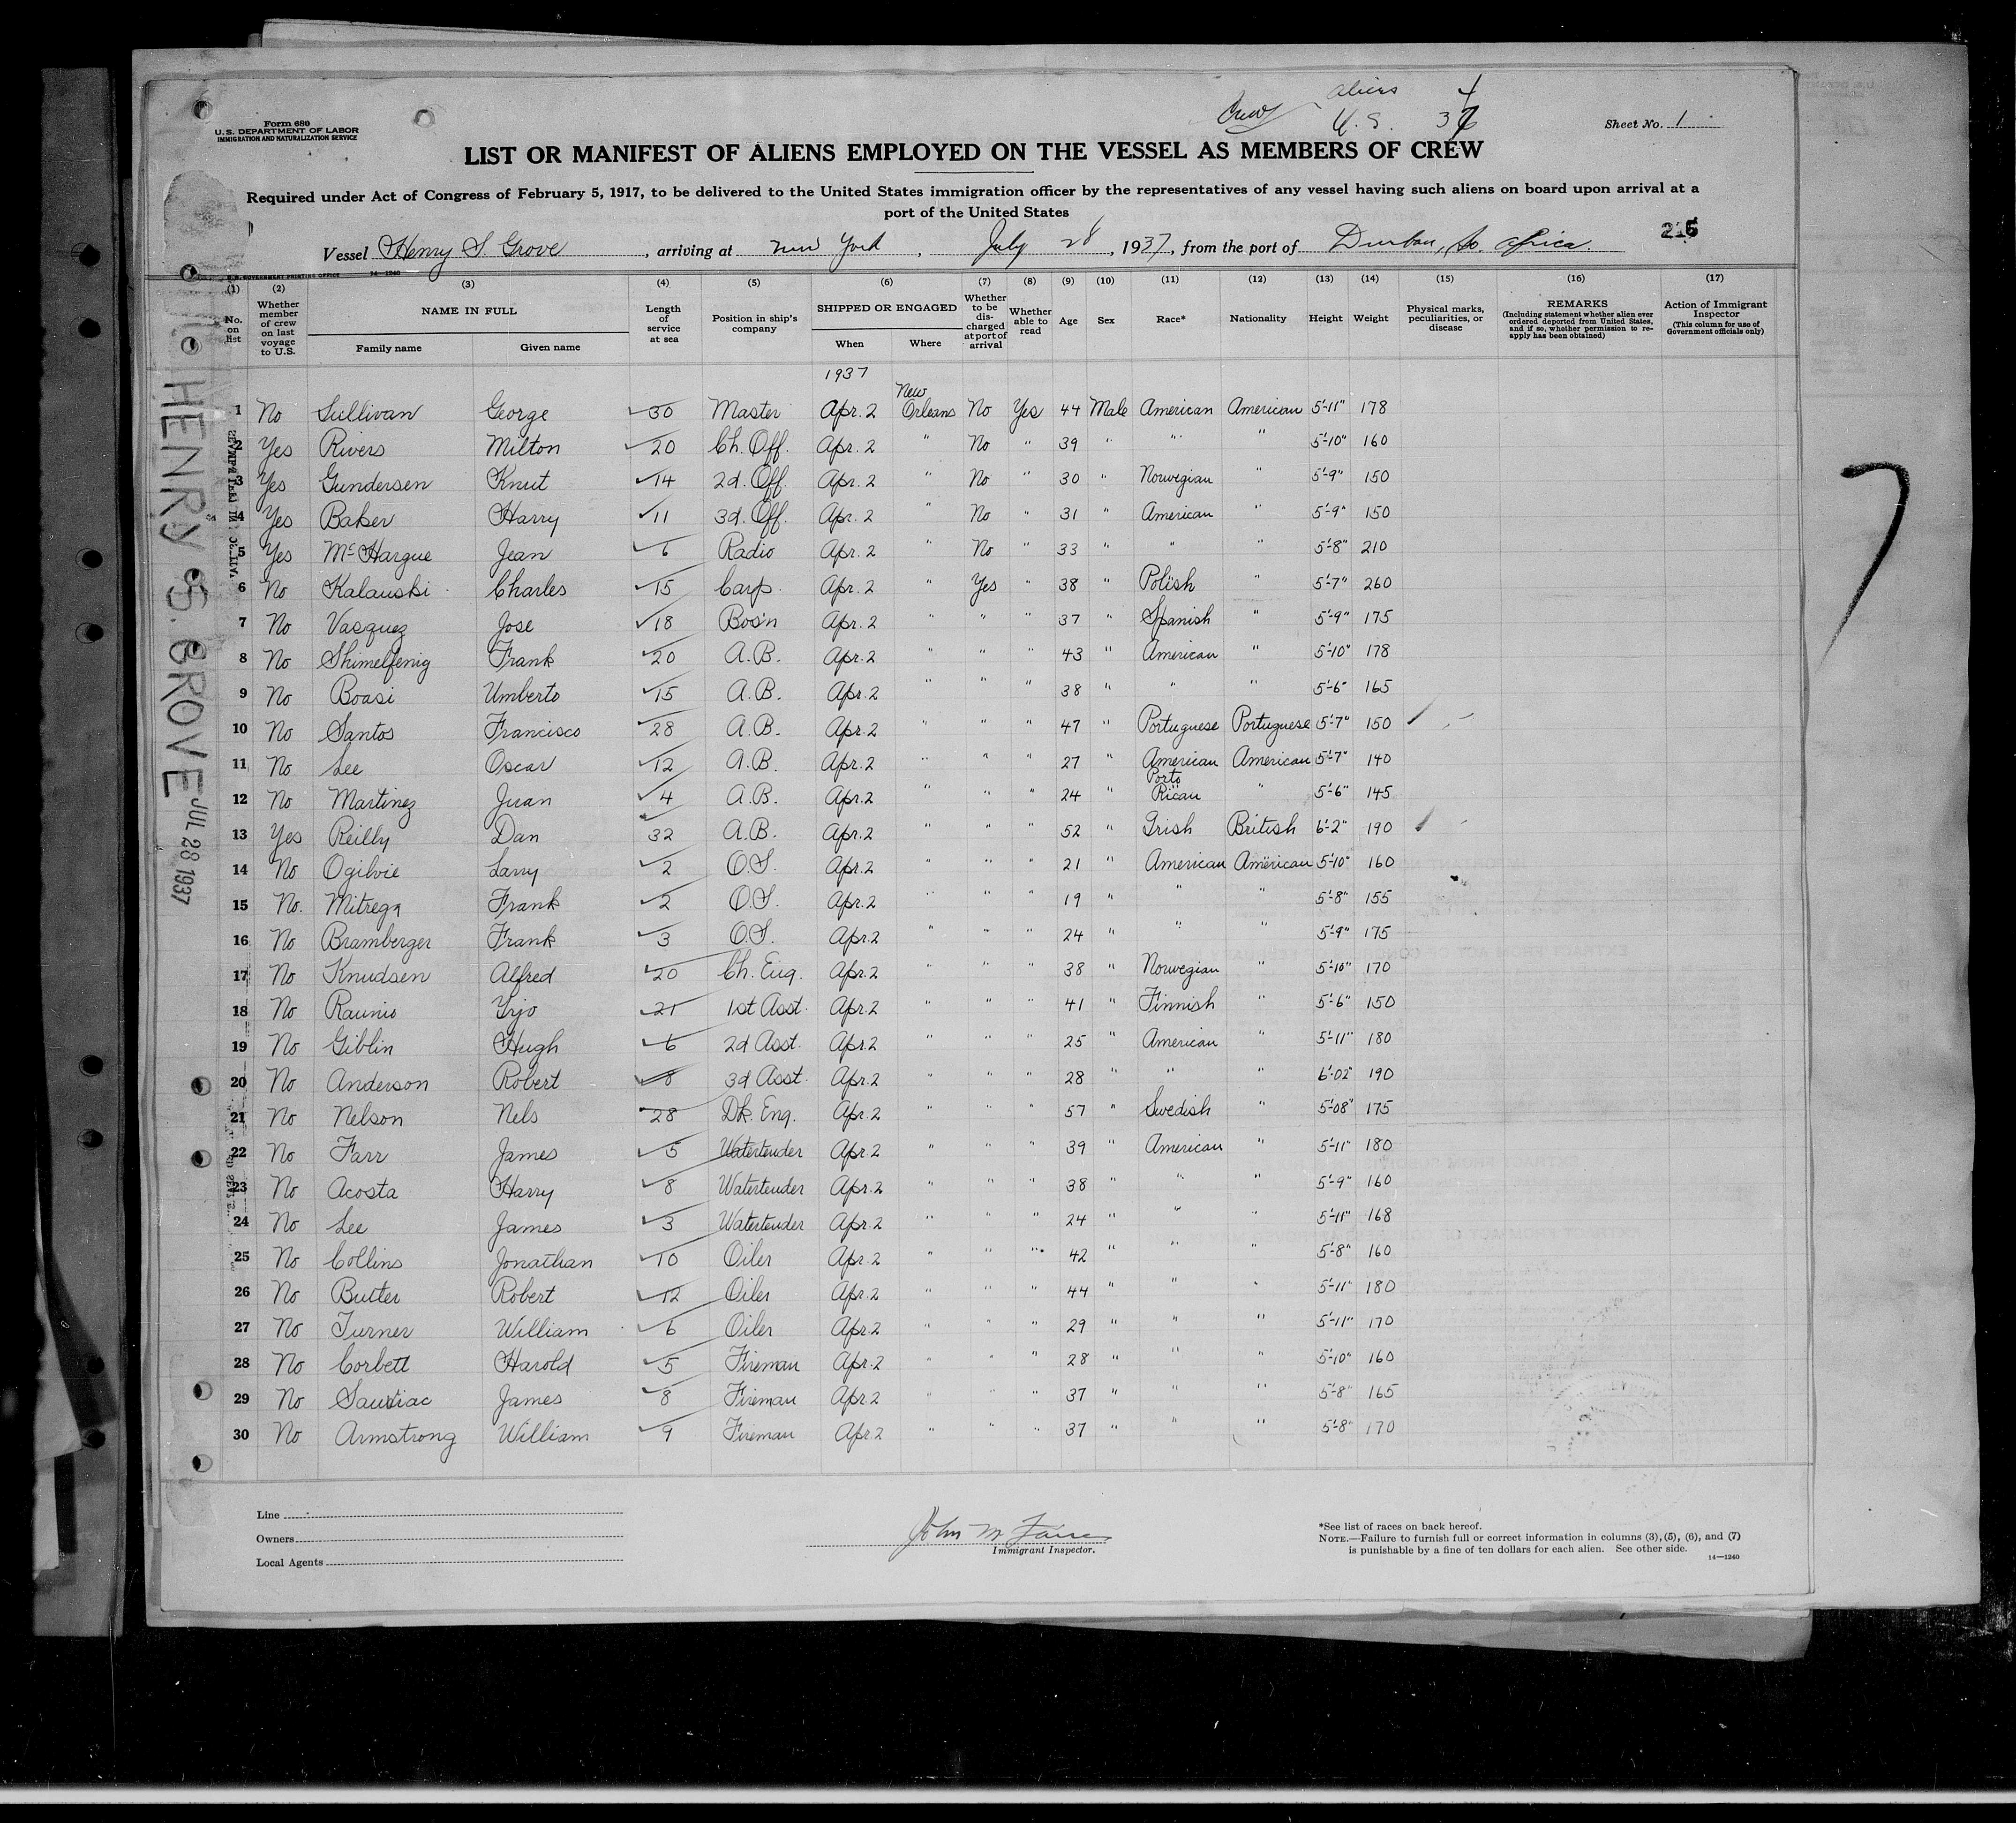 aliers 4
Crew U.S. 3
Form 680
U. S. DEPARTMENT OF LABOR
IMMIGRATION AND NATURALIZATION SERVICE
Sheet No. 1
LIST OR MANIFEST OF ALIENS EMPLOYED ON THE VESSEL AS MEMBERS OF CREW
Required under Act of Congress of February 5, 1917, to be delivered to the United States immigration officer by the representatives of any vessel having such aliens on board upon arrival at a
port of the United States
216
Vessel Henry S Grove, arriving at New York, July 28, 1937, from the port of Durban, So. Africa.
U.S. GOVERNMENT PRINTING OFFICE 14—1240
(1) (2) (3) (4) (5) (6) (7) (8) (9) (10) (11) (12) (13) (14) (15) (16) (17)
No. on list
Whether member of crew on last voyage to U.S.
NAME IN FULL
Family name Given name
Length of service at sea
Position in ship's company
SHIPPED OR ENGAGED
When Where
Whether to be discharged at port of arrival
Whether able to read
Age
Sex
Race*
Nationality
Height
Weight
Physical marks, peculiarities, or disease
REMARKS
(Including statement whether alien ever ordered deported from United States, and if so, whether permission to reapply has been obtained)
Action of Immigrant Inspector
(This column for use of Government officials only)
1937
1 No Sullivan George 30 Master Apr. 2 New Orleans No Yes 44 Male American American 5'-11" 178
2 Yes Rivers Milton 20 Ch. Off. Apr. 2 " No " 39 " " " 5'-10" 160
3 Yes Gundersen Knut 14 2d. Off. Apr. 2 " No " 30 " Norwegian " 5'-9" 150
4 Yes Baker Harry 11 3d. Off. Apr. 2 " No " 31 " American " 5'-9" 150
5 Yes McHargue Jean 6 Radio Apr. 2 " No " 33 " " " 5'-8" 210
6 No Kalauski Charles 15 Carp. Apr. 2 " Yes " 38 " Polish " 5'-7" 260
7 No Vasquez Jose 18 Bos'n Apr. 2 " " " 37 " Spanish " 5'-9" 175
8 No Shimelfenig Frank 20 A.B. Apr. 2 " " " 43 " American " 5'-10" 178
9 No Boasi Umberto 15 A.B. Apr. 2 " " " 38 " " " 5'-6" 165
10 No Santos Francisco 28 A.B. Apr. 2 " " " 47 " Portuguese Portuguese 5'-7" 150
11 No Lee Oscar 12 A.B. Apr. 2 " " " 27 " American American 5'-7" 140
12 No Martinez Juan 4 A.B. Apr. 2 " " " 24 " Porto Rican " 5'-6" 145
13 Yes Reilly Dan 32 A.B. Apr. 2 " " " 52 " Irish British 6'-2" 190
14 No Ogilvie Larry 2 O.S. Apr. 2 " " " 21 " American American 5'-10" 160
15 No. Mitrega Frank 2 O.S. Apr. 2 " " " 19 " " " 5'-8" 155
16 No Bramberger Frank 3 O.S. Apr. 2 " " " 24 " " " 5'-9" 175
17 No Knudsen Alfred 20 Ch. Eng. Apr. 2 " " " 38 " Norwegian " 5'-10" 170
18 No Raunio Yrjo 21 1st Asst. Apr. 2 " " " 41 " Finnish " 5'-6" 150
19 No Giblin Hugh 6 2d Asst. Apr. 2 " " " 25 " American " 5'-11" 180
20 No Anderson Robert 8 3d Asst. Apr. 2 " " " 28 " " " 6'-02" 190
21 No Nelson Nels 28 Dk. Eng. Apr. 2 " " " 57 " Swedish " 5'-08" 175
22 No Farr James 5 Watertender Apr. 2 " " " 39 " American " 5'-11" 180
23 No Acosta Harry 8 Watertender Apr. 2 " " " 38 " " " 5'-9" 160
24 No Lee James 3 Watertender Apr. 2 " " " 24 " " " 5'-11" 168
25 No Collins Jonathan 10 Oiler Apr. 2 " " " 42 " " " 5'-8" 160
26 No Butler Robert 12 Oiler Apr. 2 " " " 44 " " " 5'-11" 180
27 No Turner William 6 Oiler Apr. 2 " " " 29 " " " 5'-11" 170
28 No Corbett Harold 5 Fireman Apr. 2 " " " 28 " " " 5'-10" 160
29 No Sautiac James 8 Fireman Apr. 2 " " " 37 " " " 5'-8" 165
30 No Armstrong William 9 Fireman Apr. 2 " " " 37 " " " 5'-8" 170
HENRY S. GROVE JUL 28 1937
7
Line
Owners
Local Agents
John W
Immigrant Inspector.
*See list of races on back hereof.
NOTE.—Failure to furnish full or correct information in columns (3), (5), (6), and (7)
is punishable by a fine of ten dollars for each alien. See other side.
14—1240